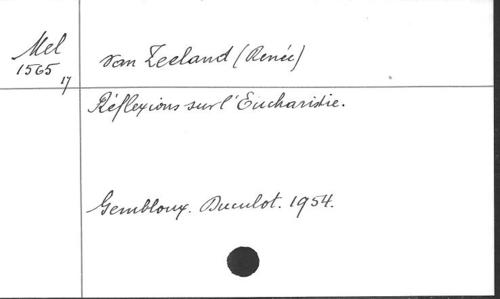 Mel
1565
17
van Zeeland (Renée)
Réflexions sur l'Eucharistie.
Gembloux. Duculot. 1954.